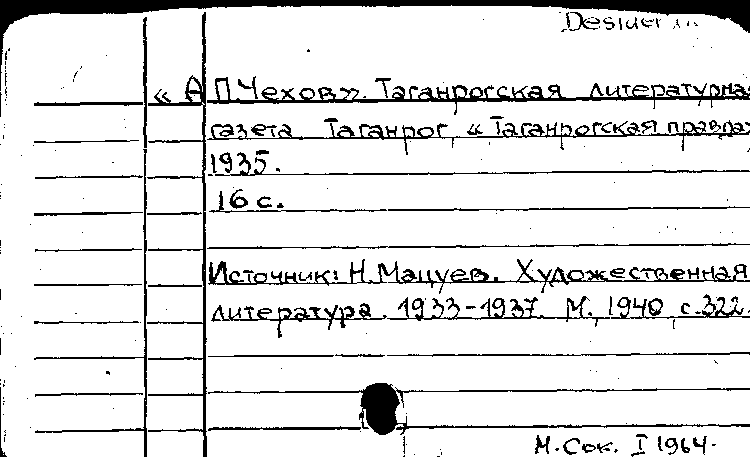 « А П.Чехов». Таганрогская литературная
газета Таганрог, «Таганрогская правда»
1935.
16 с.
Источник: Н.Мацуев. Художественная
литература. 1933-1937. М., 1940, с.322.
М.Сок. I 1964.